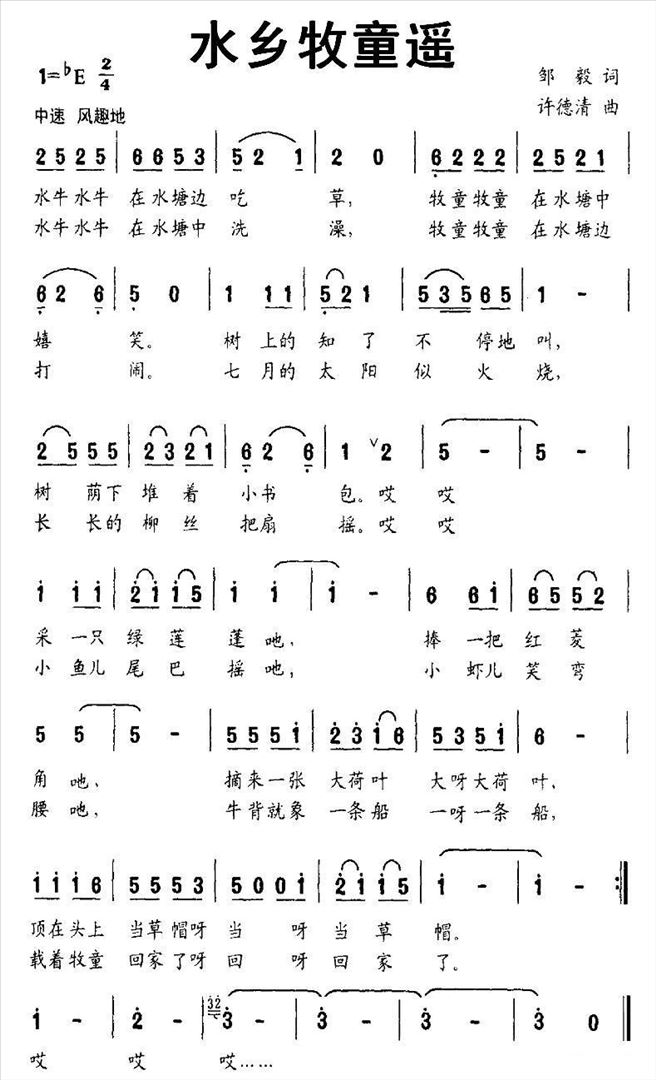 水乡牧童遥
1=♭E 2/4
邹 毅 词
中速 风趣地
许德清 曲
2 5 2 5 | 6 6 5 3 | 5 2 1 | 2 0 | 6 2 2 2 | 2 5 2 1 |
水牛水牛 在水塘边 吃 草, 牧童牧童 在水塘中
水牛水牛 在水塘中 洗 澡, 牧童牧童 在水塘边
6 2 6 | 5 0 | 1 1 1 | 5 2 1 | 5 3 5 6 5 | 1 - |
嬉 笑。 树 上的 知 了 不 停地 叫,
打 闹。 七 月的 太 阳 似 火 烧,
2 5 5 5 | 2 3 2 1 | 6 2 6 | 1 ∨ 2 | 5 - | 5 - |
树 荫下 堆 着 小书 包。哎 哎
长 长的 柳 丝 把扇 摇。哎 哎
1 1 1 | 2 1 1 5 | 1 1 | 1 - | 6 6 1 | 6 5 5 2 |
采 一只 绿 莲 蓬吔, 捧 一把 红 菱
小 鱼儿 尾 巴 摇吔, 小 虾儿 笑 弯
5 5 | 5 - | 5 5 5 1 | 2 3 1 6 | 5 3 5 1 | 6 - |
角 吔、 摘来一张 大荷叶 大呀大荷 叶,
腰 吔, 牛背就象 一条船 一呀一条 船,
1 1 1 6 | 5 5 5 3 | 5 0 0 1 | 2 1 1 5 | 1 - | 1 - :‖
顶在头上 当草帽呀 当 呀 当 草 帽。
载着牧童 回家了呀 回 呀 回 家 了。
1 - | 2 - | 32 3 - | 3 - | 3 - | 3 0 ‖
哎 哎 哎……